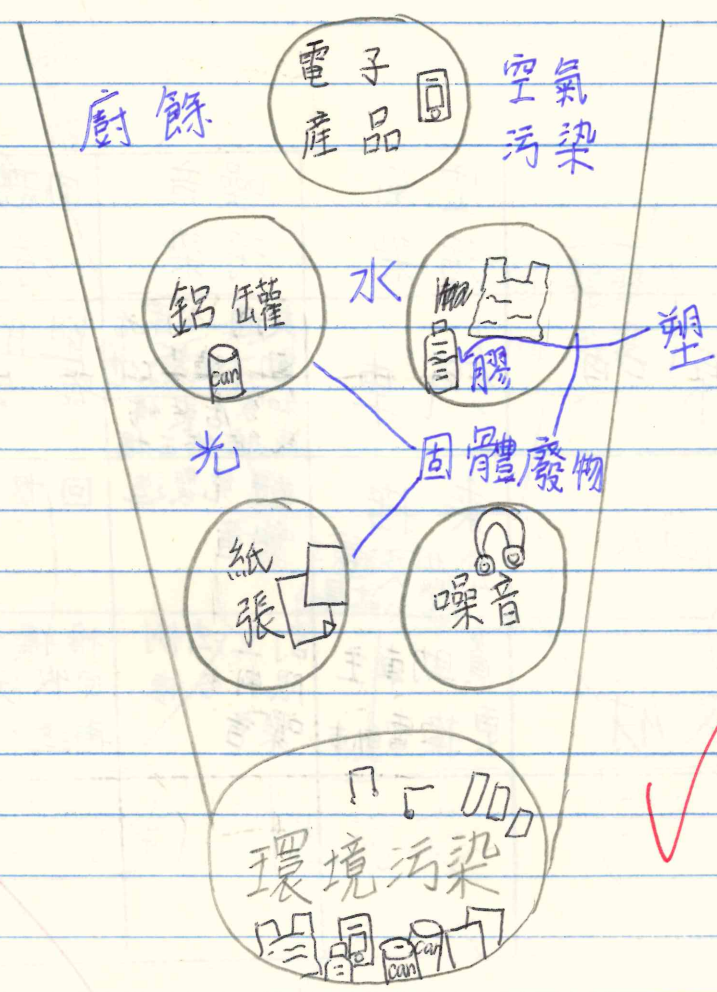 電子
產品
廚餘
空氣
污染
鋁罐
can
水
塑
膠
光
固體廢物
紙
張
噪音
環境污染
can
can